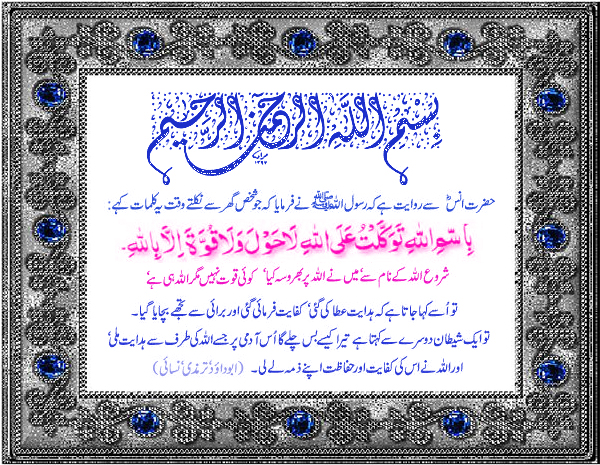 بِسْمِ اللهِ الرَّحْمٰنِ الرَّحِيْمِ
حضرت انسؓ سے روایت ہے کہ رسول اللہ ﷺ نے فرمایا کہ جو شخص گھر سے نکلتے وقت یہ کلمات کہے:
بِاسْمِ اللهِ تَوَكَّلْتُ عَلَى اللهِ لَا حَوْلَ وَلَا قُوَّةَ اِلَّا بِاللهِ۔
شروع اللہ کے نام سے' میں نے اللہ پر بھروسہ کیا' کوئی قوت نہیں مگر اللہ ہی ہے'
تو اُسے کہا جاتا ہے کہ ہدایت عطا کی گئی' کفایت فرمائی گئی اور برائی سے تجھے بچایا گیا۔
تو ایک شیطان دوسرے سے کہتا ہے تیرا کیسے بس چلے گا اُس آدمی پر جسے اللہ کی طرف سے ہدایت ملی'
اور اللہ نے اس کی کفایت اور حفاظت اپنے ذمہ لے لی۔ (ابوداؤد' ترمذی' نسائی)